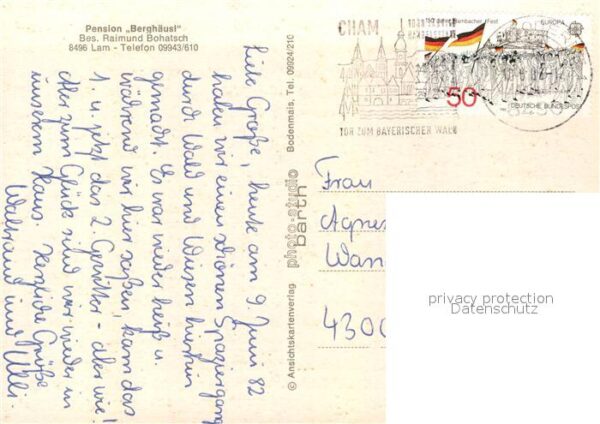 Pension „Berghäusl"
Bes. Raimund Bohatsch
8496 Lam - Telefon 09943/610
Liebe Große, heute am 9. Juni 82
haben wir einen schönen Spaziergang
durch Wald und Wiesen hierhin
gemacht. Es war wieder heiß u.
während wir hier saßen, kam das
1. u. jetzt das 2. Gewitter - aber wie!
Aber zum Glück sind wir wieder in
unserem Haus. Herzliche Grüße
Waltraud und Ulli.
© Ansichtskartenverlag photo-studio barth Bodenmais, Tel. 09924/210
CHAM
TOR ZUM BAYERISCHEN WALD
150 Jahre Hambacher Fest
EUROPA
50
DEUTSCHE BUNDESPOST
Frau
Agnes
Wan
4300
privacy protection
Datenschutz